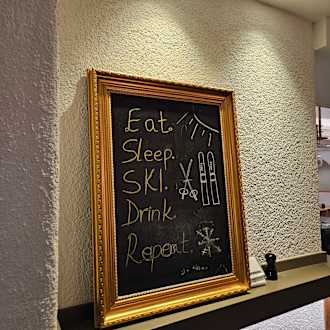 Eat.
Sleep.
SKI.
Drink.
Repeat.